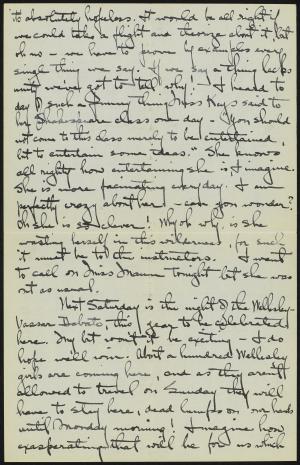 it's absolutely hopeless. It would be all right if
we could take a flight and theorize about it but
oh no - we have to prove by examples every
single thing we say. If we say a thing lacks
unity we've got to tell why! I heard to-
day of such a funny thing Miss Keys said to
her Shakespeare class one day - "You should
not come to this class merely to be entertained,
but to entertain some ideas." She knows
all right how entertaining she is I imagine.
She is more fascinating every day. I am
perfectly crazy about her - can you wonder?
Oh she is so clever! Why oh why, is she
wasting herself in this wilderness, for such
it must be to the instructors. I went
to call on Miss tonight but she was
out as usual.
Next Saturday is the night of the Wellesley-
Vassar Debate, this year to be celebrated
here. My but won't it be exciting - I do
hope we'll win. About a hundred Wellesley
girls are coming here, and as they aren't
allowed to travel on Sunday they will
have to stay here, dead lumps on our hands
until Monday morning! Imagine how
exasperating that will be for us which